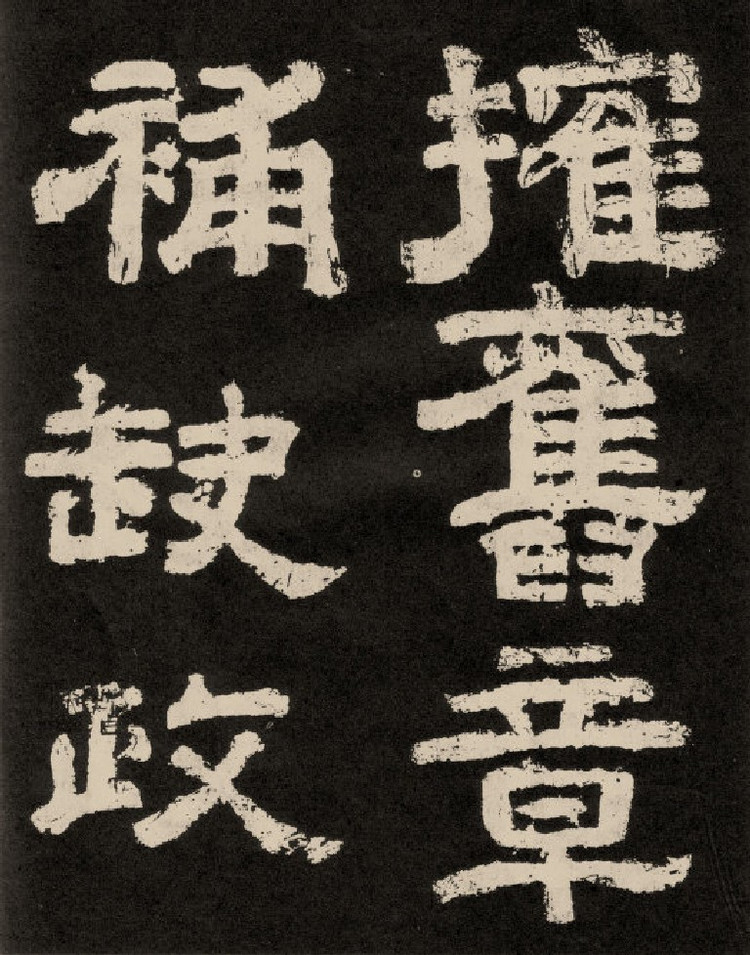 搉舊章
補缺政